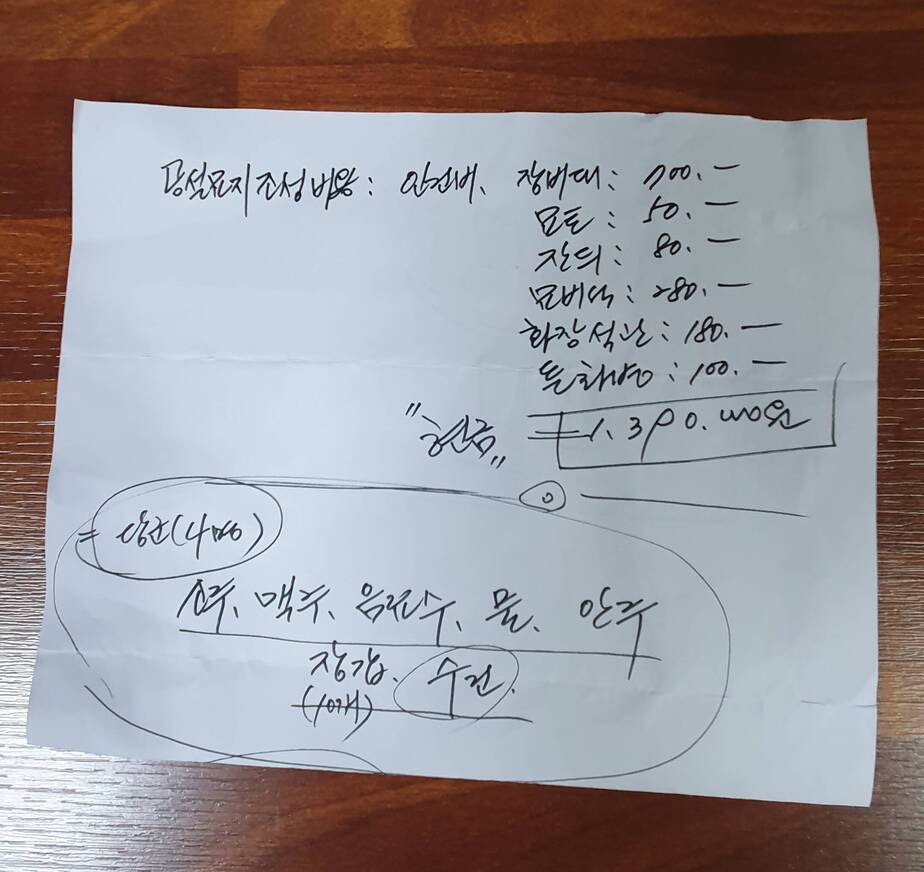 공설묘지조성비용: 인건비、장비대: 700.—
묘토: 50.—
잔듸: 80.—
묘비석: 280.—
화장석관: 180.—
돌화병: 100.—
"현금" = 1.390.000원
= (4명)
소주、맥주、음료수、물、안주
장갑. 수건.
(10개)